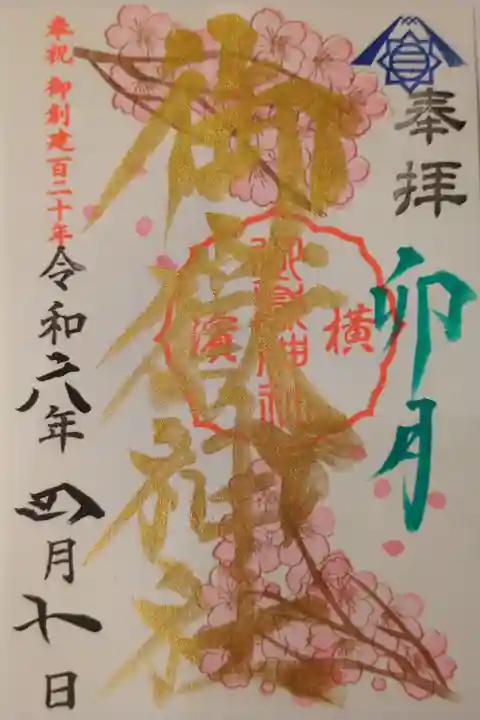 奉拝
卯月
横濱
御嶽神社
御嶽神社
令和六年四月十日
奉祝 御創建百二十年